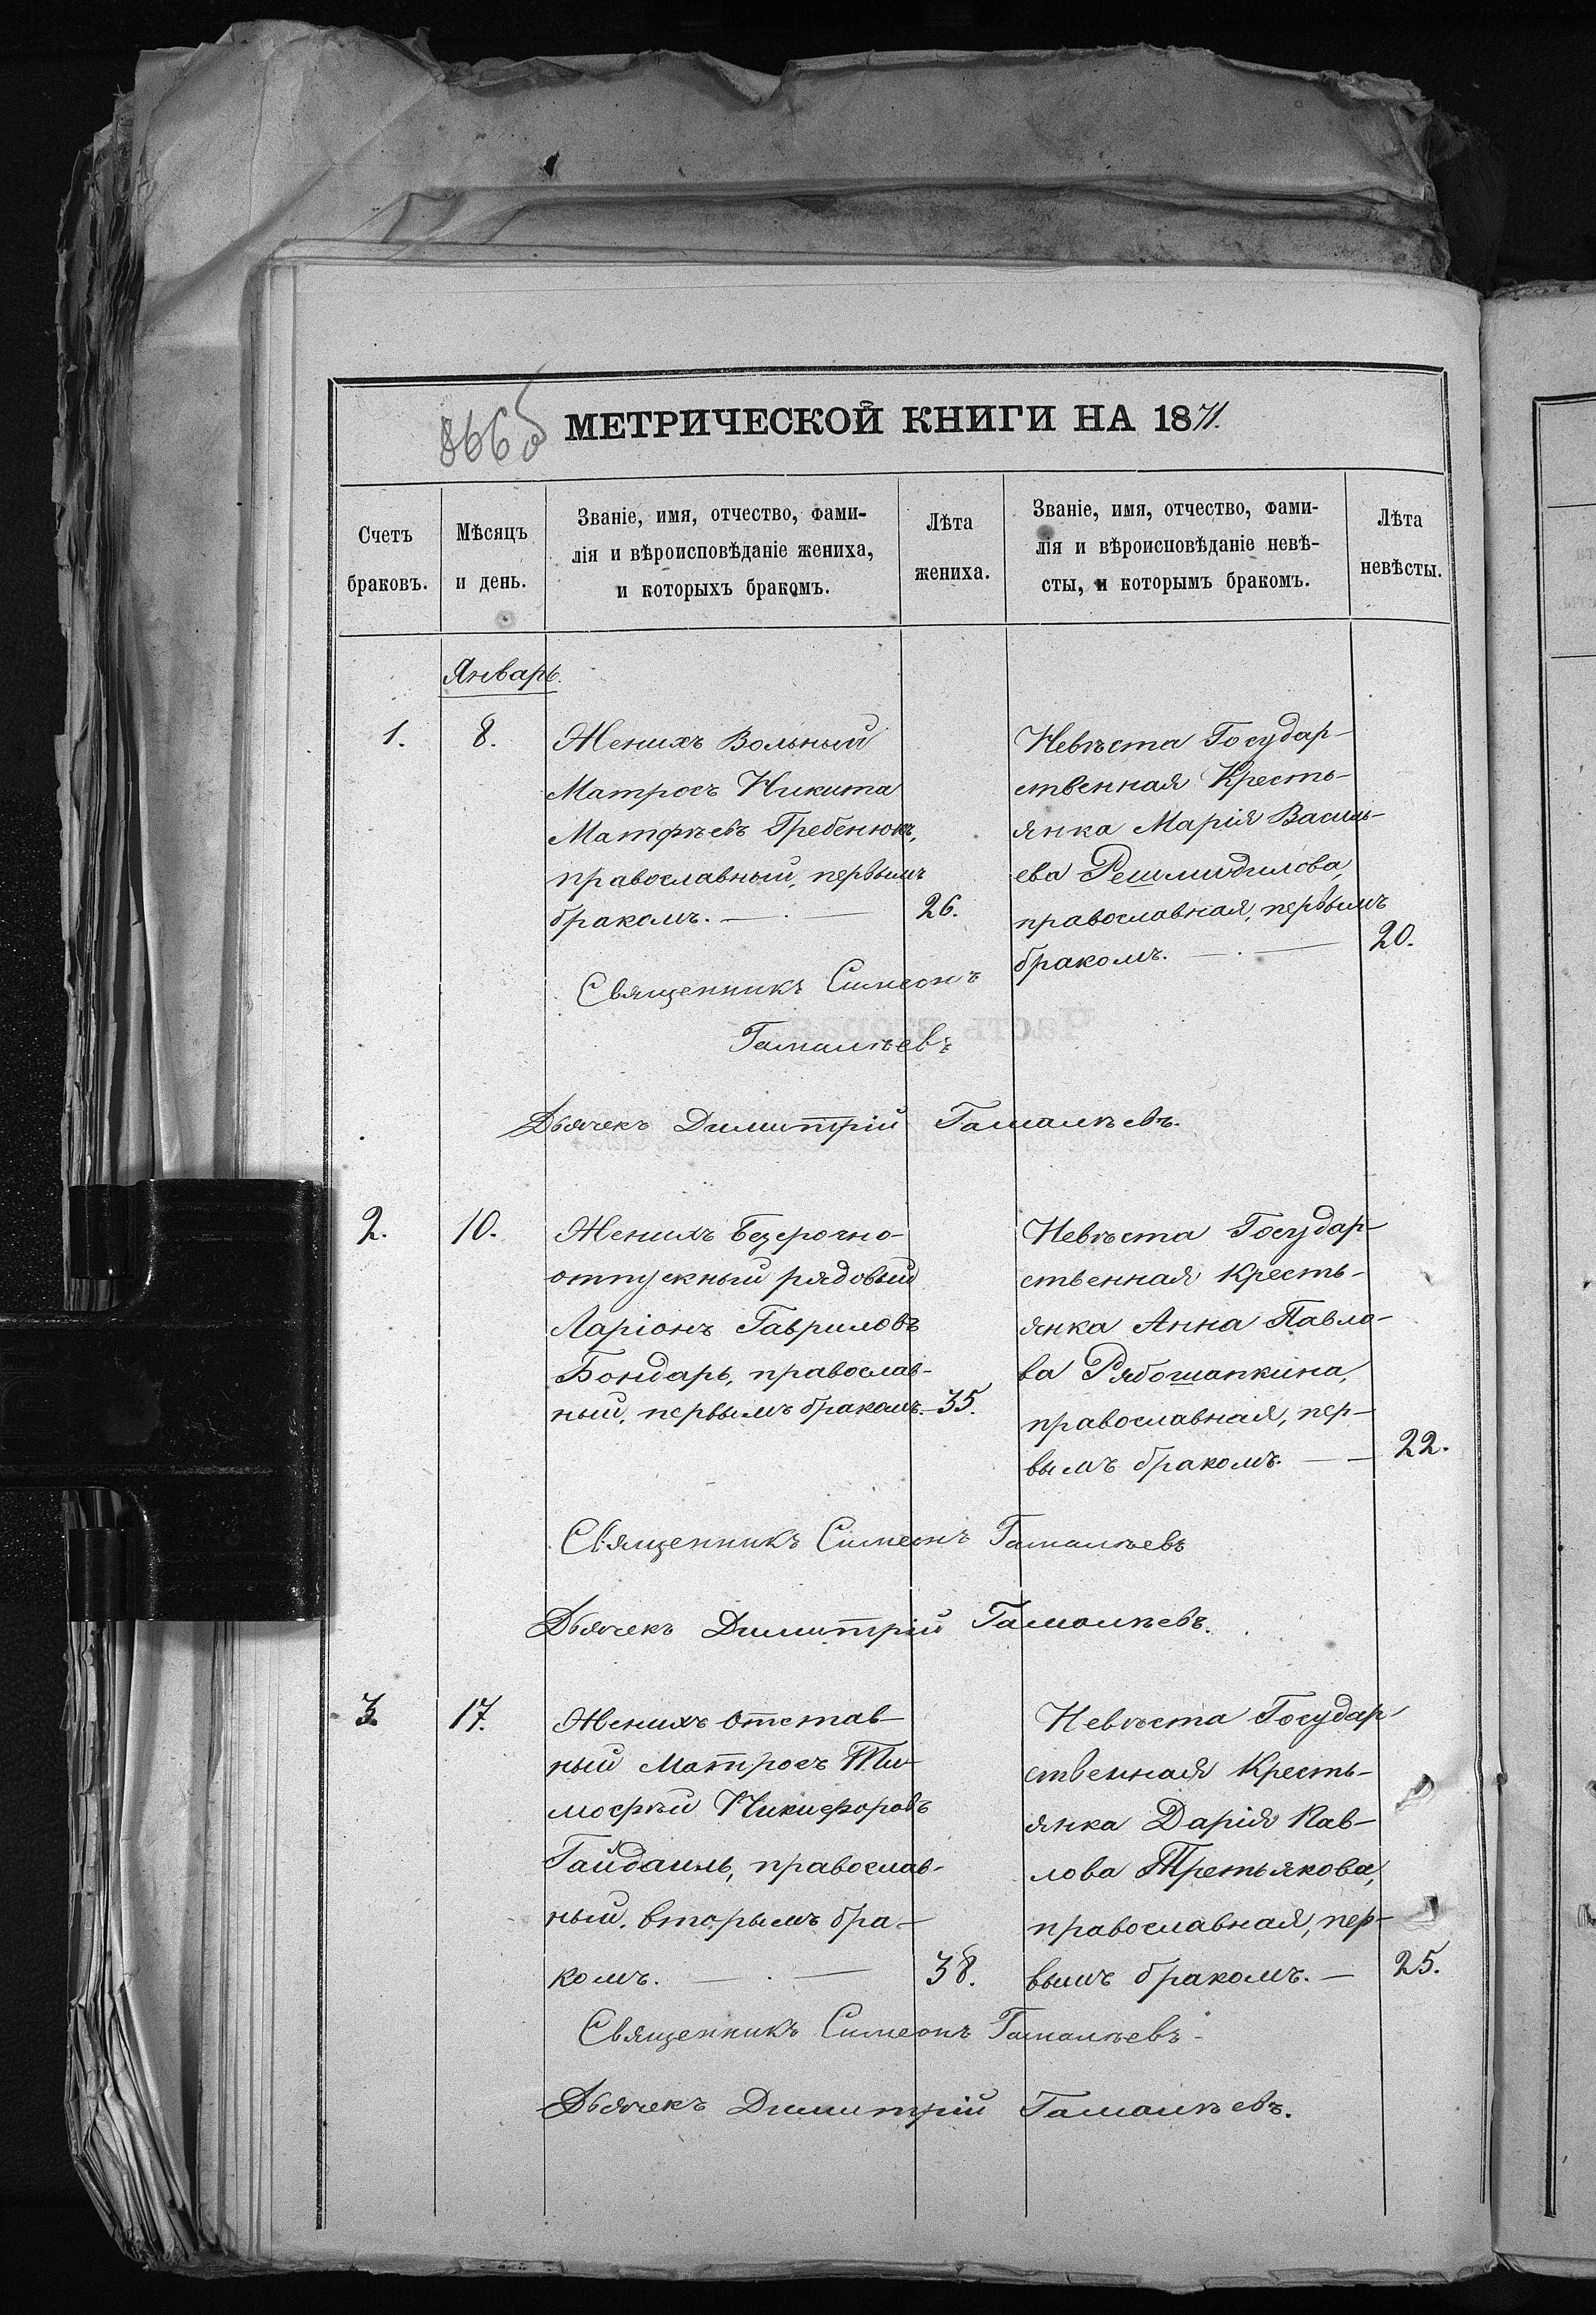 866б
МЕТРИЧЕСКОЙ КНИГИ НА 1871.
Счетъ
браковъ.
Мѣсяцъ
и день.
Званіе, имя, отчество, фами-
лія и вѣроисповѣданіе жениха,
и которыхъ бракомъ.
Лѣта
жениха.
Званіе, имя, отчество, фами-
лія и вѣроисповѣданіе невѣ-
сты, и которымъ бракомъ.
Лѣта
невѣсты.
Январь.
1.
8.
Женихъ Вольный
Матросъ Никита
Матфѣевъ Гребенюкъ,
православный, первымъ
бракомъ. — . —
26.
Невѣста Государ-
ственная Кресть-
янка Марія Василь-
ева
православная, первымъ
бракомъ. — . —
20.
Священникъ Симеонъ
Гамалѣевъ
Дьячекъ Димитрій Гамалѣевъ.
2.
10.
Женихъ Безсрочно-
отпускный рядовый
Ларіонъ Гавриловъ
Бондарь, православ-
ный, первымъ бракомъ.—
35.
Невѣста Государ-
ственная Кресть-
янка Анна Павло-
ва Рябошапкина,
православная, пер-
вымъ бракомъ. — —
22.
Священникъ Симеонъ Гамалѣевъ
Дьячекъ Димитрій Гамалѣевъ.
3.
17.
Женихъ Отстав-
ный Матросъ Ти-
мофѣй Никифоровъ
Гайдашь, православ-
ный, вторымъ бра-
комъ. — . —
38.
Невѣста Государ-
ственная Кресть-
янка Дарія Пав-
лова Третьякова,
православная, пер-
вымъ бракомъ. —
25.
Священникъ Симеонъ Гамалѣевъ.
Дьячекъ Димитрій Гамалѣевъ.